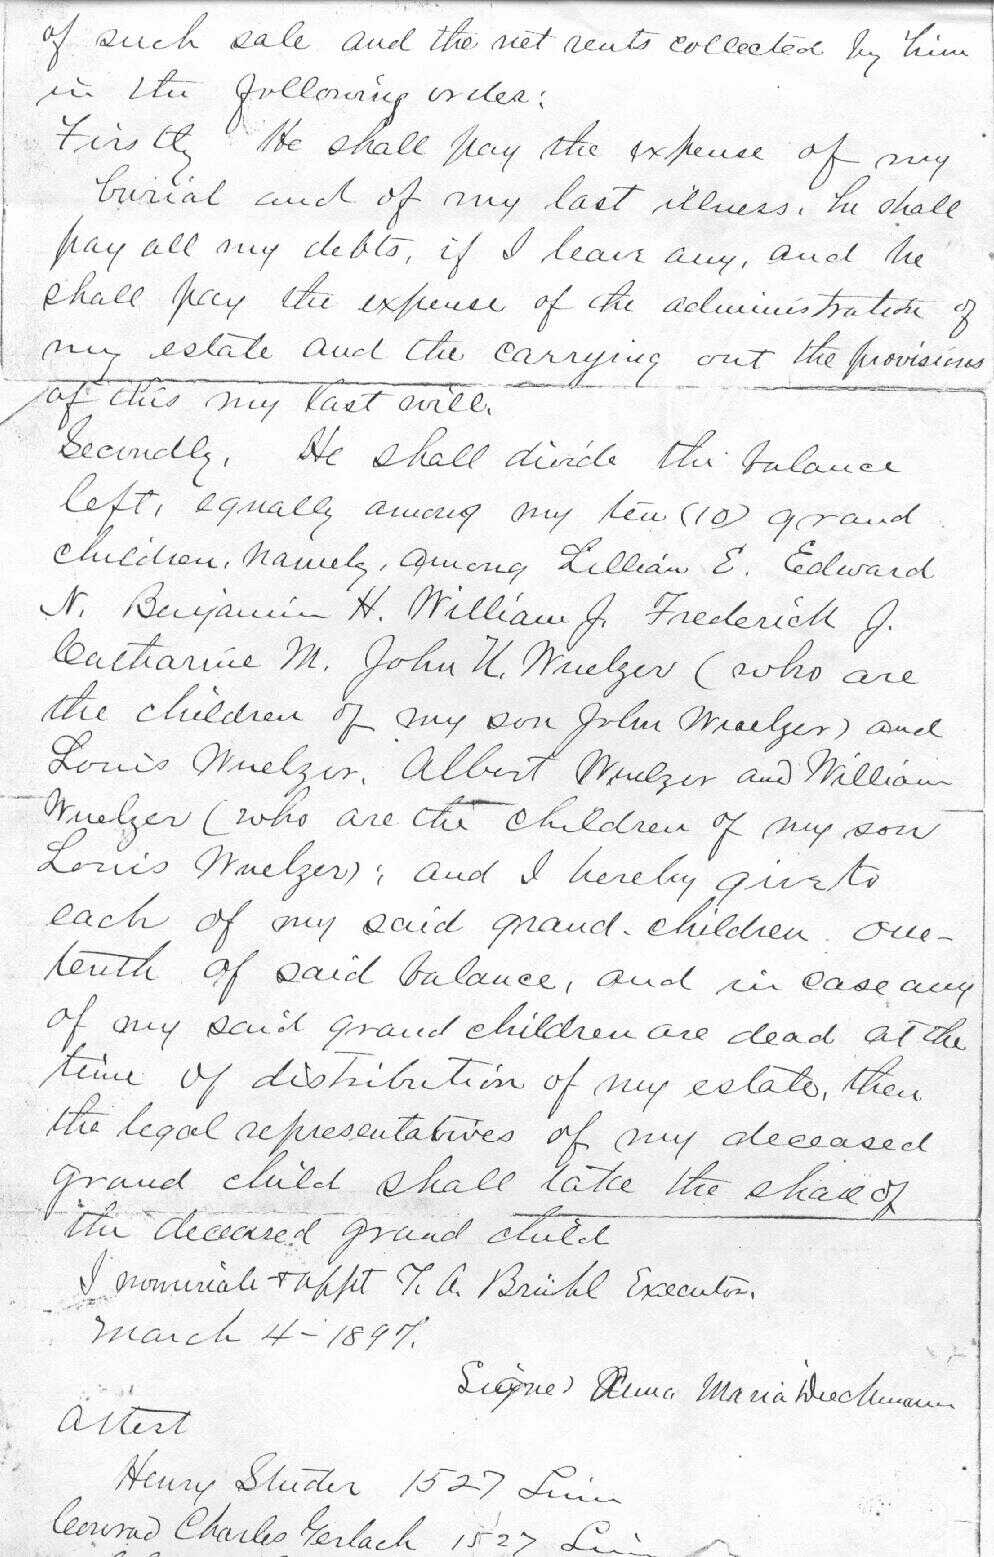 of such sale and the net rents collected by him
in the following order:
Firstly He shall pay the expense of my
burial and of my last illness, he shall
pay all my debts, if I leave any, and he
shall pay the expense of the administration of
my estate and the carrying out the provisions
of this my last will.
Secondly, He shall divide the balance
left, equally among my ten (10) grand
children, namely, among Lillian E. Edward
N. Benjamin H. William J. Frederick J.
Catharine M. John H. Wuelzer (who are
the children of my son John Wuelzer) and
Louis Wuelzer, Albert Wuelzer and William
Wuelzer (who are the children of my son
Louis Wuelzer); and I hereby give to
each of my said grand-children one-
tenth of said balance, and in case any
of my said grand children are dead at the
time of distribution of my estate, then
the legal representatives of my deceased
grand child shall take the share of
the deceased grand child
I nominate + appt T. A. Brühl Executor.
March 4 - 1897.
Signed Anna Maria Dieckmann
Attest
Henry Studer 1527 Linn
Conrad Charles Gerlach 1527 Linn